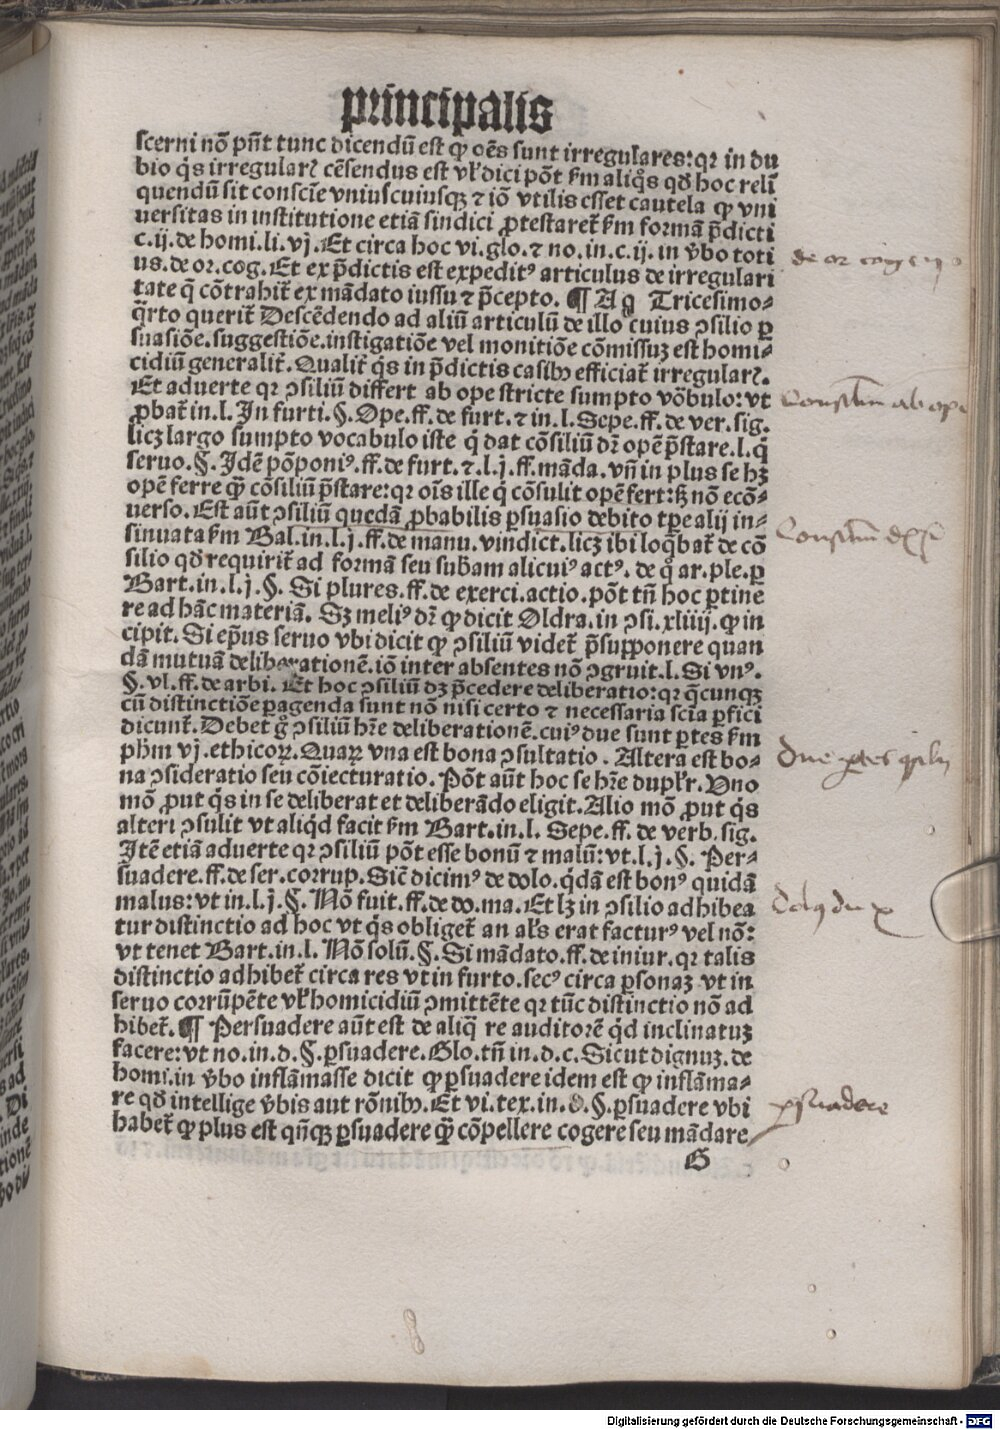 principalis
scerni nõ pñt tunc dicendũ est ꝙ oẽs sunt irregulares: qꝛ in du
bio q̃s irregularꝭ cẽsendus est vľ dici põt ẜm aliq̃s qđ hoc reli
quendũ sit consciẽ vniuscuiusqꝫ ⁊ iõ vtilis esset cautela ꝙ vni
uersitas in institutione etiã sindici ꝓtestaret̃ ẜm formã p̃dicti
c.ij. de homi. li. vj. Et circa hoc vi. glo. ⁊ no. in. c. ij. in v̾bo toti
us. de or. cog. Et ex p̃dictis est expeditꝰ articulus de irregulari
tate q̃ cõtrahit̃ ex mãdato iussu ⁊ p̃cepto. ¶ A q Tricesimo-
q̃rto querit̃ Descẽdendo ad aliũ articulũ de illo cuius ↄsilio ꝑ
suasiõe. suggestiõe. instigatiõe vel monitiõe cõmissuꝫ est homi-
cidiũ generalit̃. Qualit̃ q̃s in p̃dictis casibꝫ efficiat̃ irregularꝭ.
Et aduerte qꝛ ↄsiliũ differt ab ope stricte sumpto võbulo: vt
ꝓbat̃ in. l. In furti. §. Ope. ff. de furt. ⁊ in. l. Sepe. ff. de ver. sig.
licꝫ largo sumpto vocabulo iste q̇ dat cõsiliũ dꝛ̃ opẽ p̃stare. l. q̇
seruo. §. Idẽ põponiꝰ. ff. de furt. ⁊. l. j. ff. mãda. vñ in plus se hꝫ
opẽ ferre q̃ȝ cõsiliũ p̃stare: qꝛ oĩs ille q̇ cõsulit opẽ fert: sꝫ nõ ecõ-
uerso. Est aũt ↄsiliũ quedã ꝓbabilis ꝑsuasio debito tꝑe alij in-
sinuata ẜm Bal. in. l. j. ff. de manu. vindict. licꝫ ibi loq̃bat̃ de cõ
silio qđ requirit̃ ad formã seu subãm alicuiꝰ actꝰ. de q̊ ar. ple. ꝑ
Bart. in. l. j. §. Si plures. ff. de exerci. actio. põt tñ hoc ꝑtine
re ad hãc materiã. Sꝫ meliꝰ dꝛ̃ ꝙ dicit Oldra. in ↄsi. xliiij. ꝙ in
cipit. Si ep̃us seruo vbi dicit ꝙ ↄsiliũ videt̃ p̃supponere quan
dã mutuã deliberationẽ. iõ inter absentes nõ ↄgruit. l. Si vnꝰ.
§. vl. ff. de arbi. Et hoc ↄsiliũ dꝫ p̃cedere deliberatio: qꝛ q̃cunqꝫ
cũ distinctiõe ꝑagenda sunt nõ nisi certo ⁊ necessaria scia ꝑfici
dicunt̃. Debet g̊ ↄsiliũ hr̃e deliberationẽ. cuiꝰ due sunt ꝑtes ẜm
pħm vj. ethicoꝝ. Quaꝝ vna est bona ↄsultatio. Altera est bo-
na ↄsideratio seu cõiecturatio. Põt aũt hoc se hr̃e dupľr. Vno
mõ ꝓut q̃s in se deliberat et deliberãdo eligit. Alio mõ ꝓut q̃s
alteri ↄsulit vt aliq̇d facit ẜm Bart. in. l. Sepe. ff. de verb. sig.
Itẽ etiã aduerte qꝛ ↄsiliũ põt esse bonũ ⁊ malũ: vt. l. j. §. Per-
suadere. ff. de ser. corrup. Sic̃ dicimꝰ de dolo. q̇dã est bonꝰ quidã
malus: vt in. l. j. §. Nõ fuit. ff. de do. ma. Et lꝫ in ↄsilio adhibea
tur distinctio ad hoc vt q̃s obliget̃ an al̃s erat facturꝰ vel nõ:
vt tenet Bart. in. l. Nõ solũ. §. Si mãdato. ff. de iniur. qꝛ talis
distinctio adhibet̃ circa res vt in furto. secꝰ circa ꝑsonaꝫ vt in
seruo corrũpẽte vľ homicidiũ ↄmittẽte qꝛ tũc distinctio nõ ad
hibet̃. ¶ Persuadere aũt est de aliq̃ re auditorẽ q̇d inclinatuꝫ
facere: vt no. in. d. §. ꝑsuadere. Glo. tñ in. d. c. Sicut dignuꝫ. de
homi. in v̾bo inflãmasse dicit ꝙ ꝑsuadere idem est ꝙ inflãma-
re qđ intellige v̾bis aut rõnibꝫ. Et vi. tex. in. d. §. ꝑsuadere vbi
habet̃ ꝙ plus est qñqꝫ ꝑsuadere q̃ȝ cõpellere cogere seu mãdare
G
de or cog
ab ope
due ꝑtes
ꝑsuadere
Digitalisierung gefördert durch die Deutsche Forschungsgemeinschaft - DFG